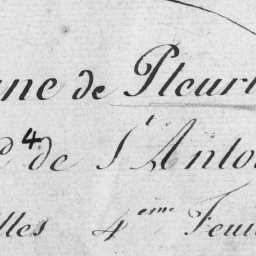 ne de Pleur
4 de St Anto
lles 4eme Feui